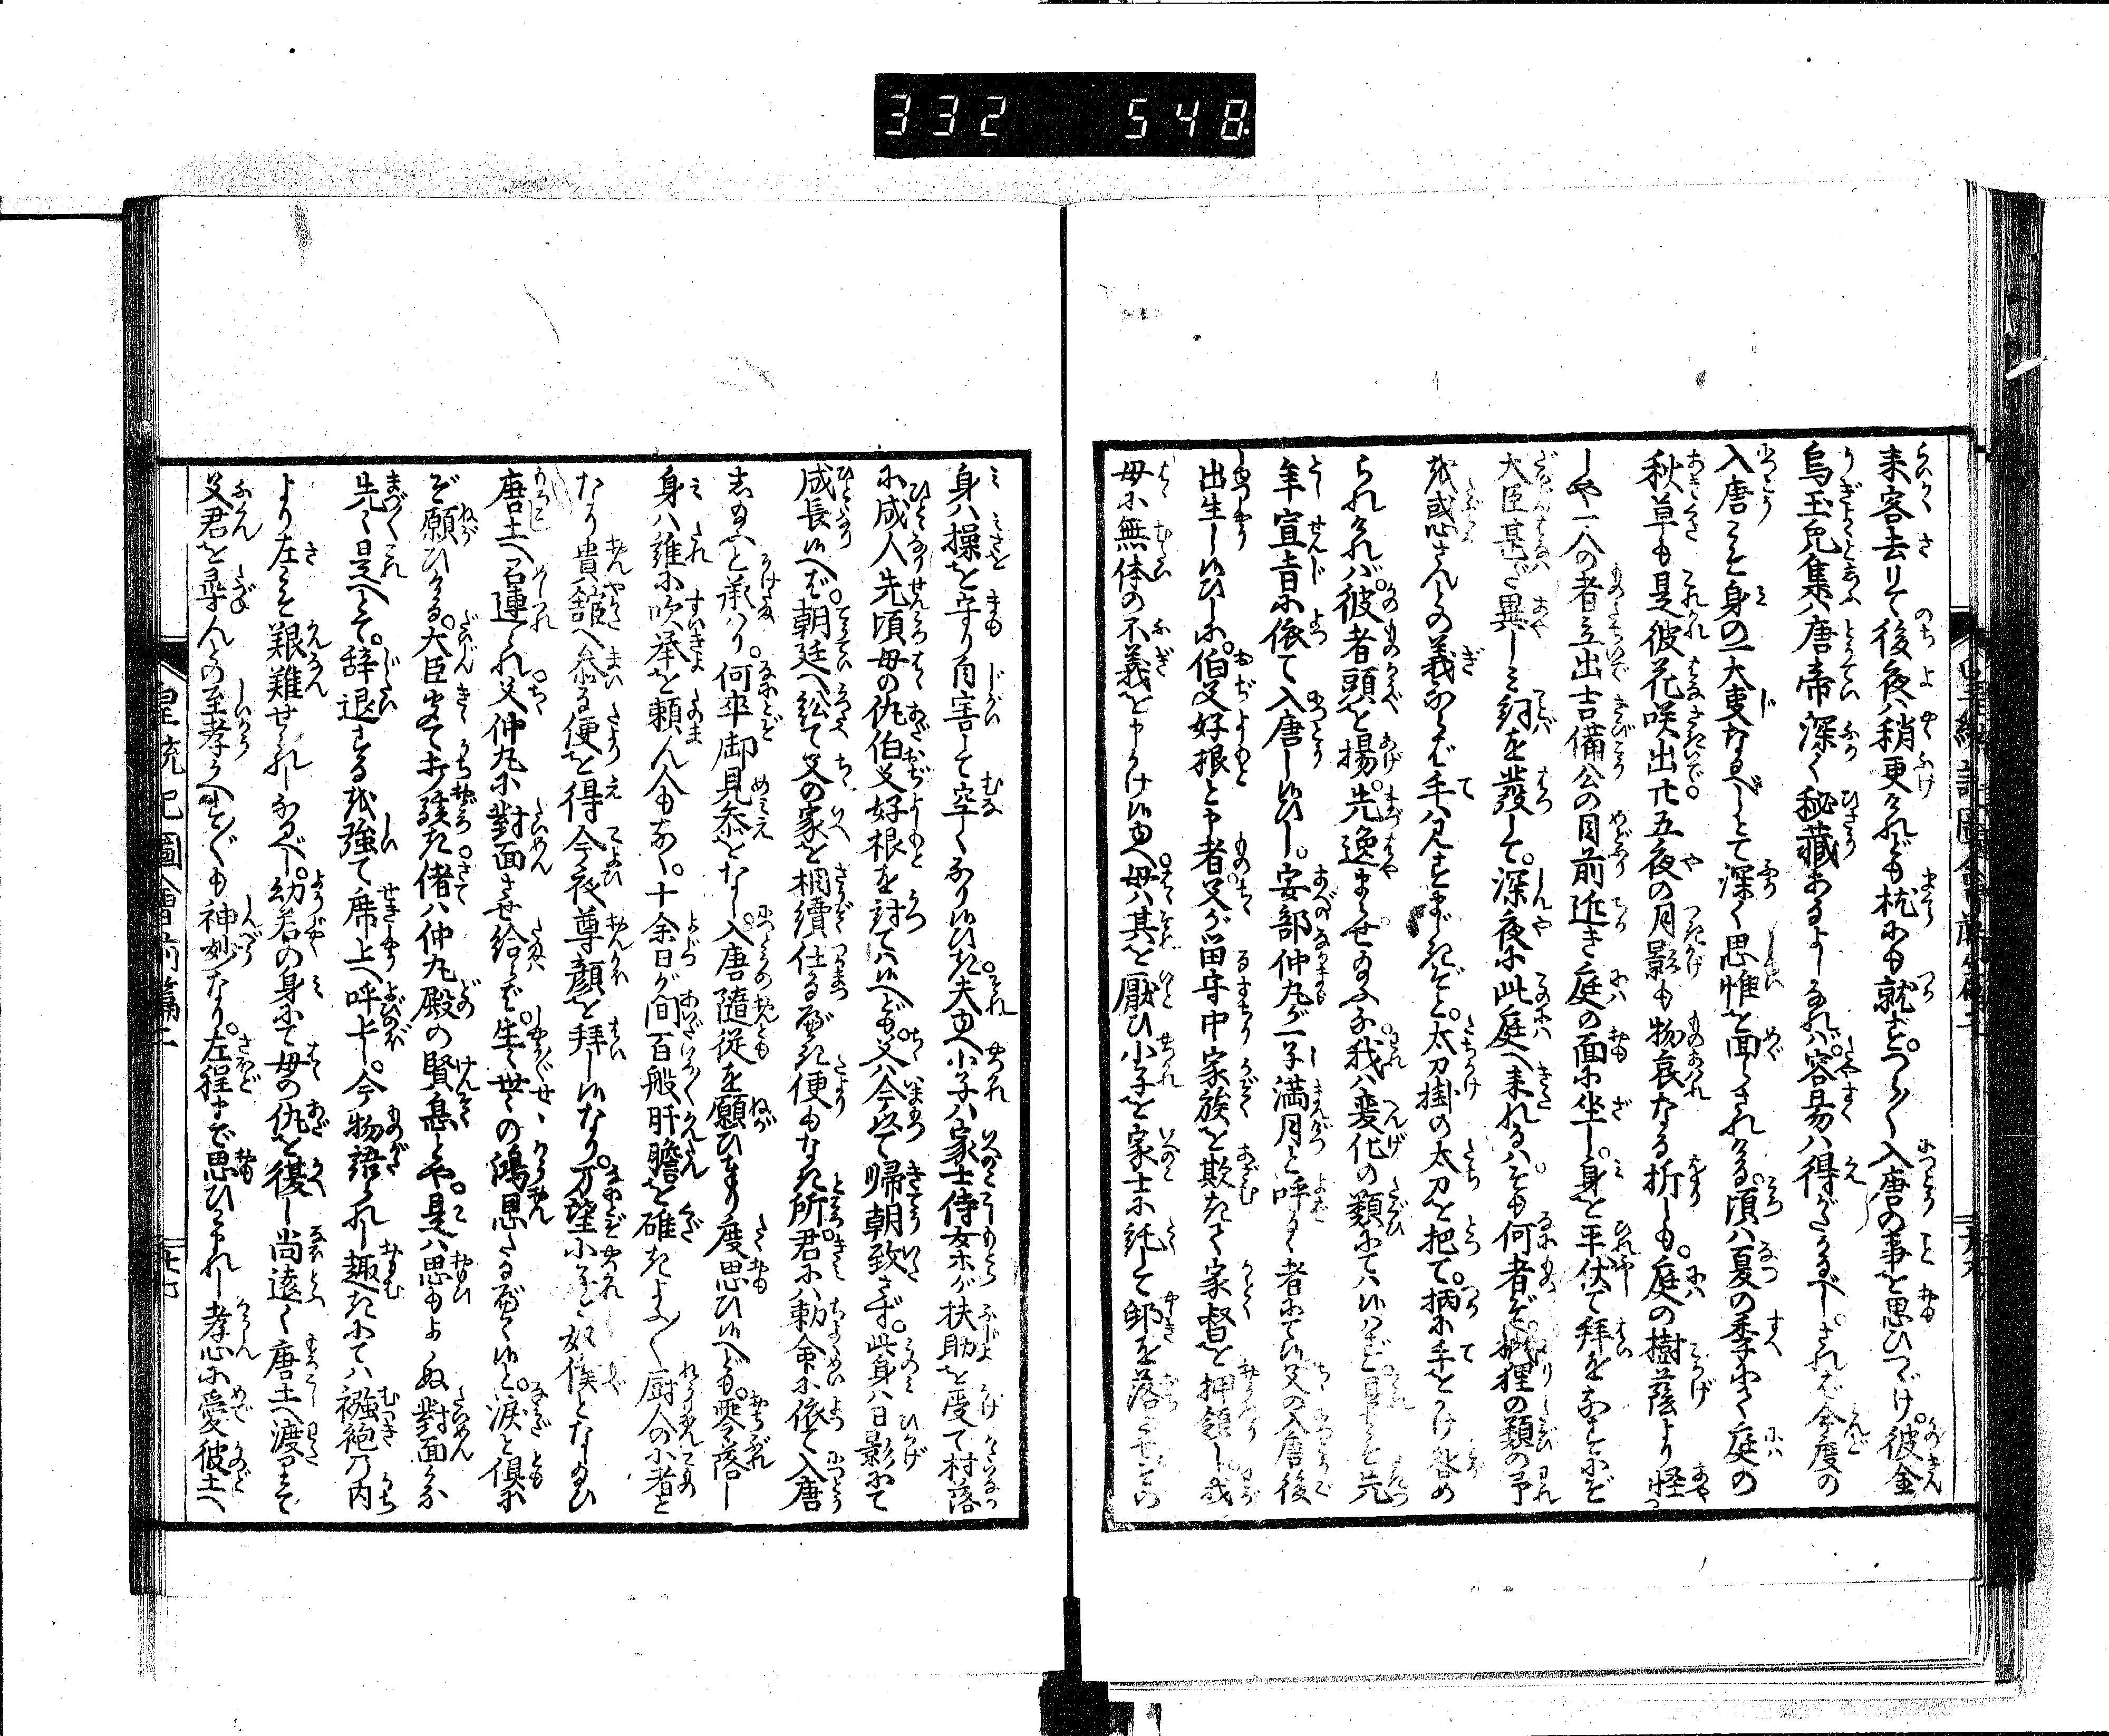 332 548
来客去りて後夜ハ稍更けれども枕にも就ず。つら〳〵入唐の事を思ひつゞけ。彼金
烏玉兎集ハ唐帝深く秘蔵あるよしなれバ。容易ハ得がたかるべし。されバ今度の
入唐こそ身の一大事なるべしとて深く思惟を回らされける。頃ハ夏の季にて庭の
秋草も是彼花咲出。廿五夜の月影も物哀なる折しも。庭の樹蔭より怪
しや一人の者立出吉備公の目前近き庭の面に坐し。身を平伏て拝をなすにぞ
大臣甚ダ異しミ詞を発して。深夜に此庭へ来れるハそも何者ぞ。狐狸の類の予
を惑さんとの義ならバ手ハ見すまじきぞと。太刀掛の太刀を把て。柄に手をかけ咎め
られけれバ。彼者頭を揚。先逸まらせ給ふな我ハ変化の類にてハ候ハず 先
年宣旨に依て入唐し候ひし。安部仲丸が一子満月と呼るゝ者にて候父の入唐後
出生し候ひしに。伯父好根と申者父が留守中家族を欺きて家督を押領し。我
母に無体の不義を申かけ候ゆへ。母ハ其を厭ひ小子を家士に託して邸を落
身ハ操を守り自害して空くなり候ひき。夫ゆへ小子ハ家士侍女等が扶助を受て村落
に成人先頃母の仇伯父好根を討てハ候へども。父ハ今以て帰朝致さず。此身ハ日影にて
成長候へバ。朝廷へ訟て父の家を相続仕るべき便もなき所。君にハ勅命に依て入唐
し給ふと承ハり。何卒御見参をなし。入唐随従を願ひ奉り度思ひ候へども。零落し
身ハ誰に吹挙を頼ん人もなく。十余日が間百般肝膽を砕きよう〳〵厨人の小者と
なり貴舘へ参る便を得今夜尊顔を拝し候なり。万望小子を奴僕となし給ひ
唐土へ召連られ。父仲丸に對面させ給らバ。生々世々の鴻恩たるべく候と。涙と倶に
ぞ願ひける。大臣聞て打驚き。偖ハ仲丸殿の賢息とや。是ハ思もよらぬ對面かな
先々是へとて。辞退するを強て席上へ呼上し。今物語られし趣きにてハ襁褓乃内
より左こそ艱難せられしなるべし。幼若の身にて母の仇を復し尚遠く唐土へ渡りて
父君を尋んとの至孝かへす〴〵も神妙なり。左程まで思ひこまれし孝心に愛彼土へ
皇統記圖會前篇二